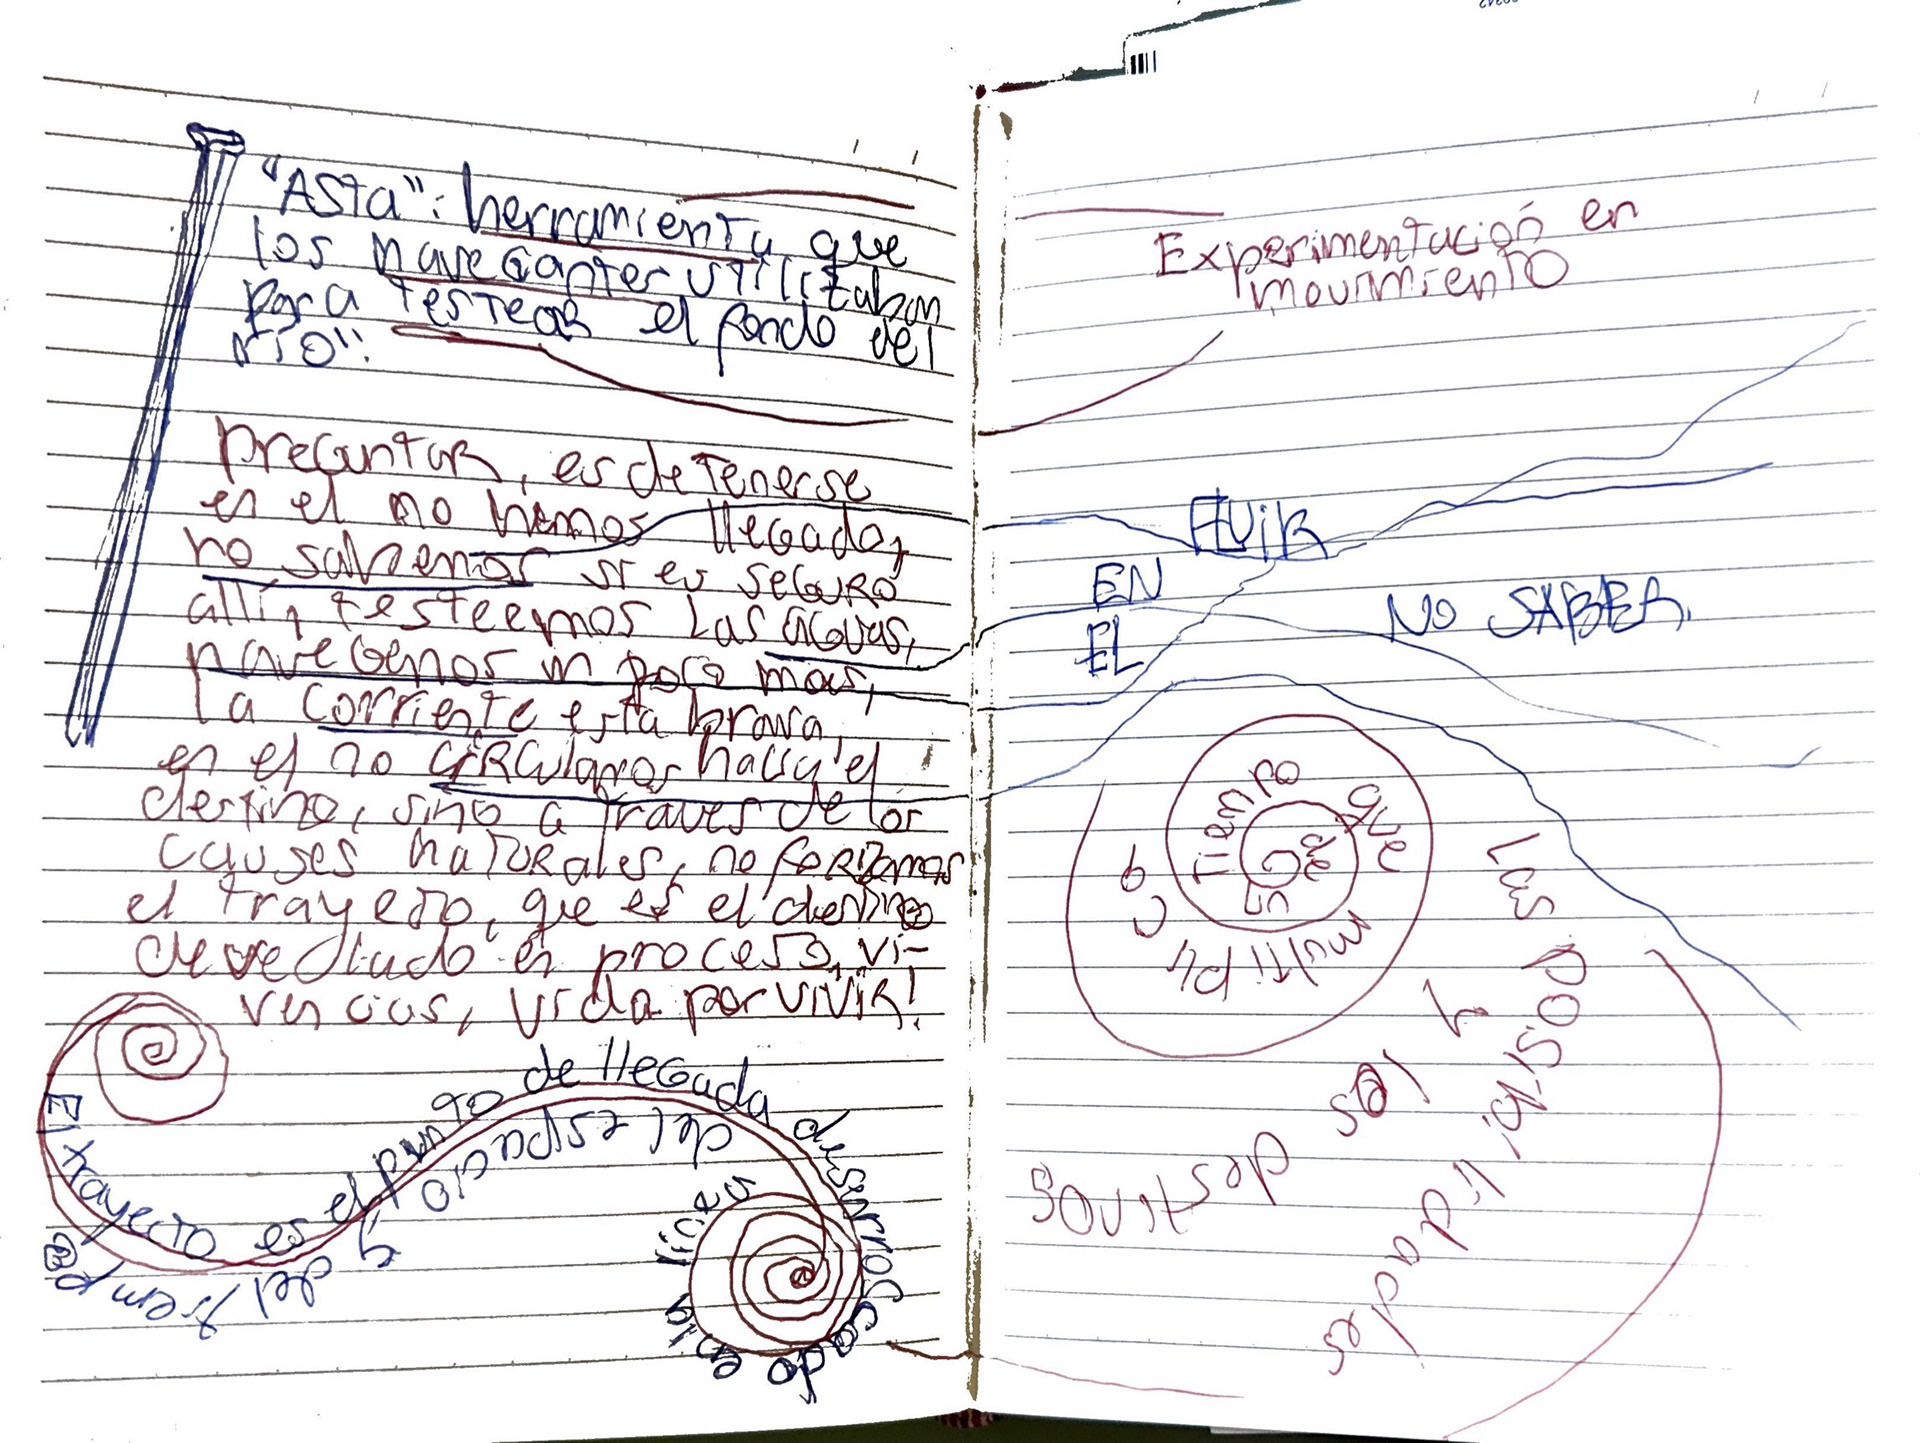 "ASTA": herramienta que
los navegantes utilizaban
para TESTEAR el fondo del
río".
preguntar, es detenerse
en el no hemos llegado,
no sabemos si es seguro
allí, testeemos las aguas,
naveguemos un poco mas,
la corriente esta brava,
en el no circularnos hacia el
destino, sino a traves de los
causes naturales, no forzamos
el trayecto, que es el destino
develado en proceso, vi-
vencias, vida por vivir!
El trayecto es el punto de llegada desarrocado en la linea
del espacio y del tiempo
Experimentación en
movimiento
FLUIR
EN
EL
NO SABER.
de un tiempo que multiplica
las posibilidades
y los destinos